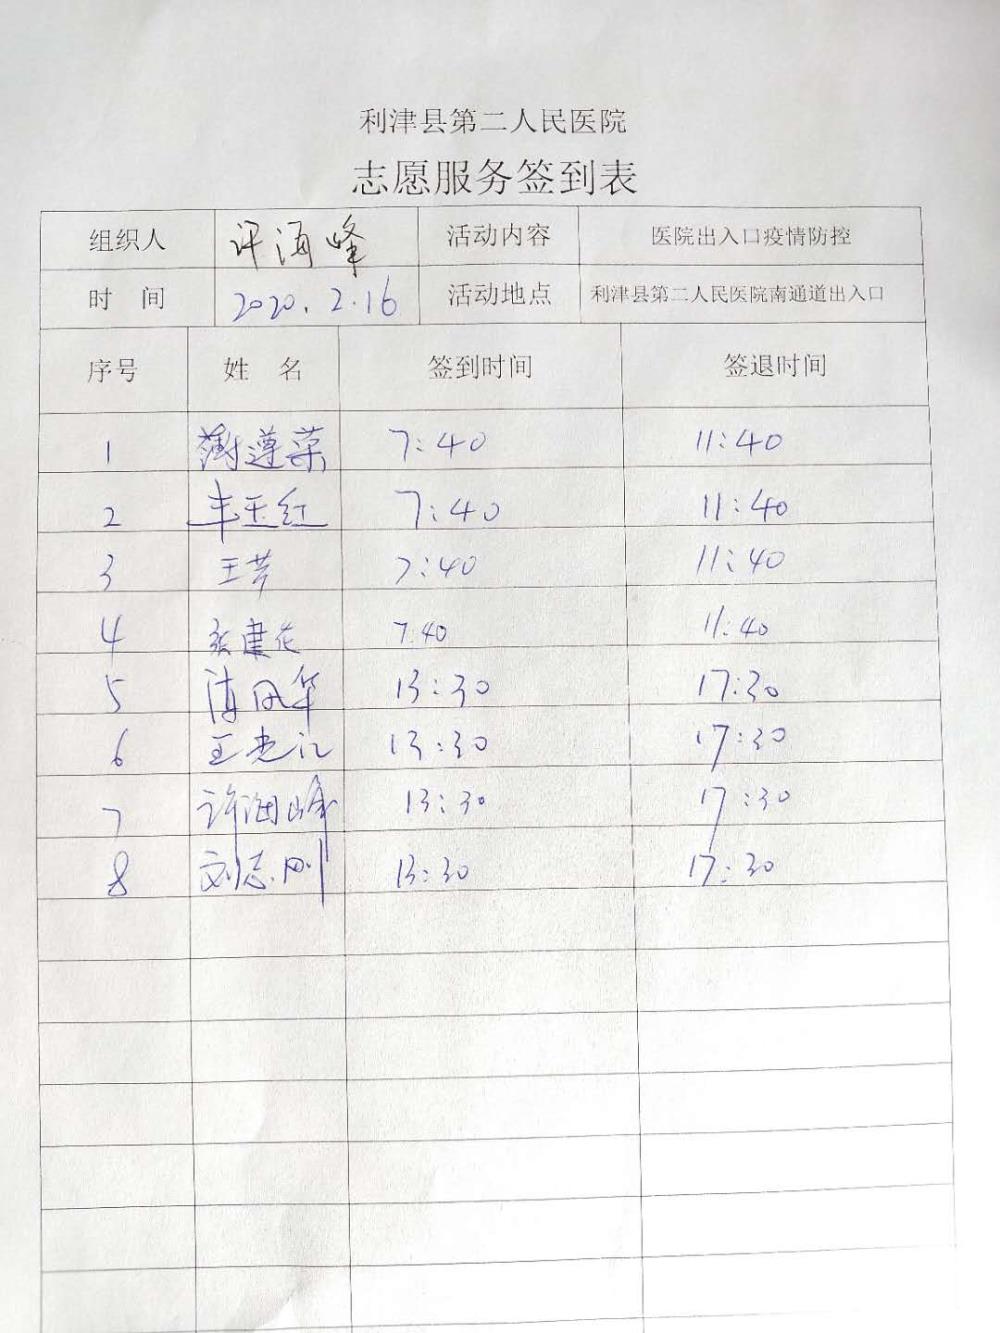 利津县第二人民医院
志愿服务签到表
组织人 许海峰 活动内容 医院出入口疫情防控
时 间 2020.2.16 活动地点 利津县第二人民医院南通道出入口
序号 姓 名 签到时间 签退时间
1 薄遵荣 7:40 11:40
2 丰玉红 7:40 11:40
3 王芳 7:40 11:40
4 张建花 7:40 11:40
5 陈凤华 13:30 17:30
6 王 江 13:30 17:30
7 许海峰 13:30 17:30
8 刘志刚 13:30 17:30